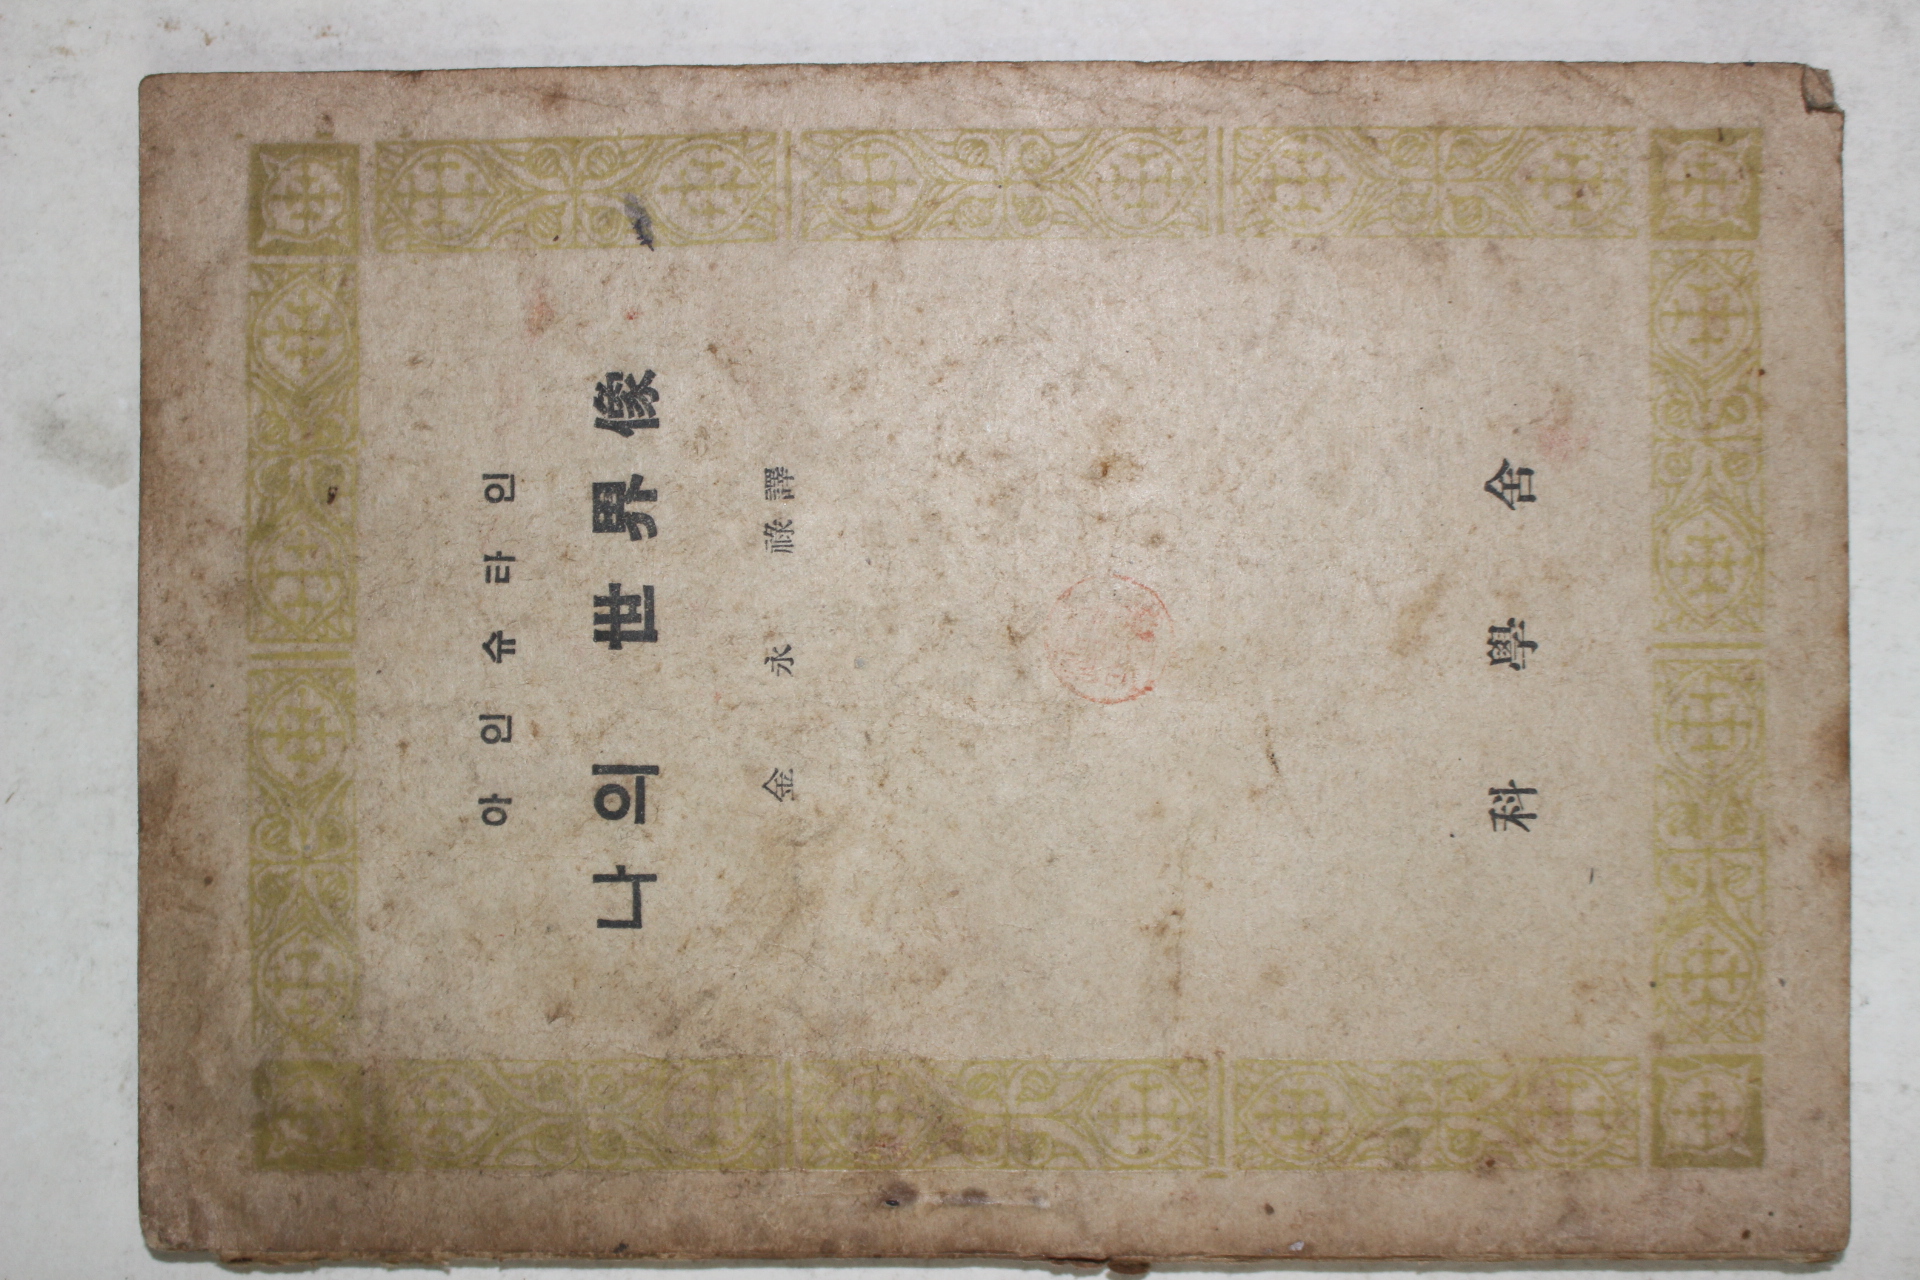 아인슈타인
나의 世界像
金永祿 譯
科學舍